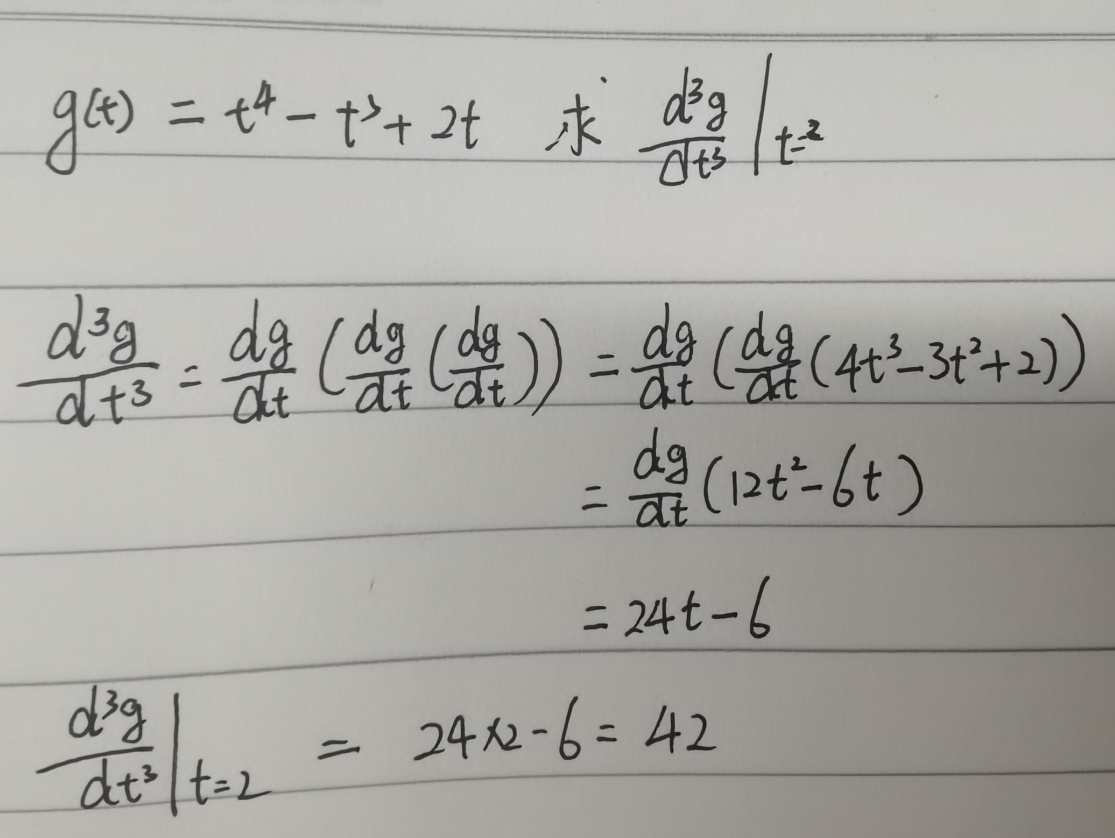 g(t) = t⁴ - t³ + 2t 求 d³g/dt³ |t=2
d³g/dt³ = dg/dt (dg/dt (dg/dt)) = dg/dt (dg/dt (4t³ - 3t² + 2))
= dg/dt (12t² - 6t)
= 24t - 6
d³g/dt³ |t=2 = 24×2 - 6 = 42